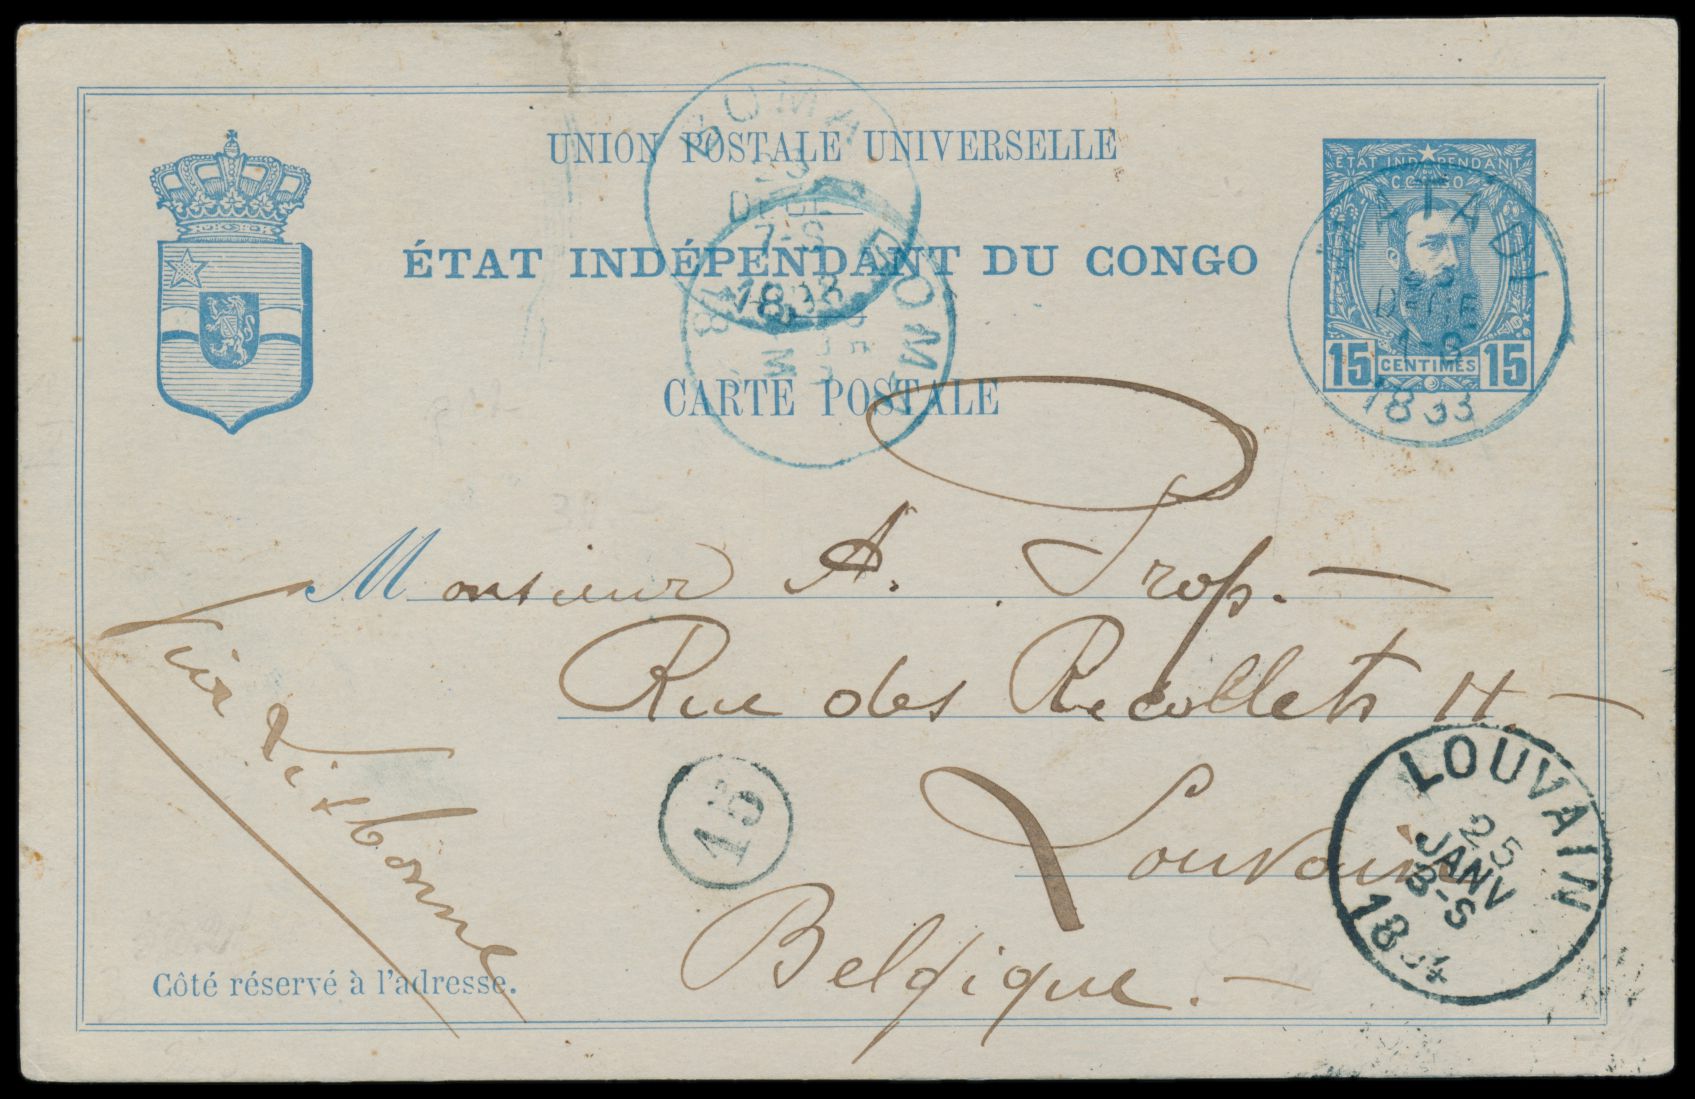 UNION POSTALE UNIVERSELLE
ÉTAT INDÉPENDANT DU CONGO
CARTE POSTALE
BOMA
DÉCE
7-S
1893
BOMA
18
ÉTAT INDÉPENDANT
CONGO
15 CENTIMES 15
MATADI
DÉCE
1-S
1893
Monsieur A. Prop.
Rue des Récollets
Louvain
Belgique.
via Lisbonne
15
LOUVAIN
25
JANV
8-S
1894
Côté réservé à l'adresse.